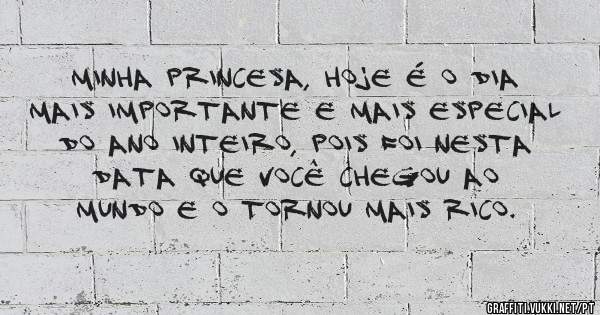 MINHA PRINCESA, HOJE É O DIA
MAIS IMPORTANTE E MAIS ESPECIAL
DO ANO INTEIRO, POIS FOI NESTA
DATA QUE VOCÊ CHEGOU AO
MUNDO E O TORNOU MAIS RICO.
GRAFFITI.VUKKI.NET/PT